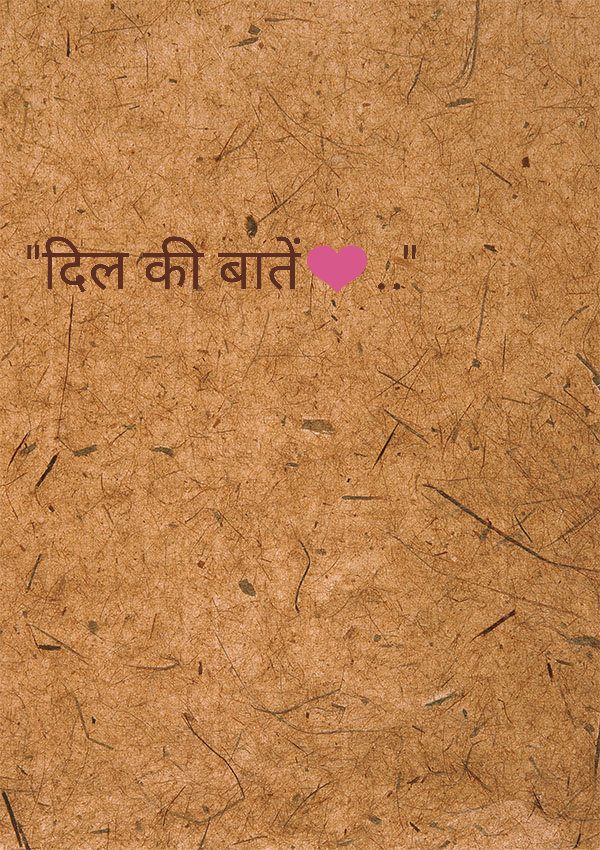 "दिल की बातें❤.."